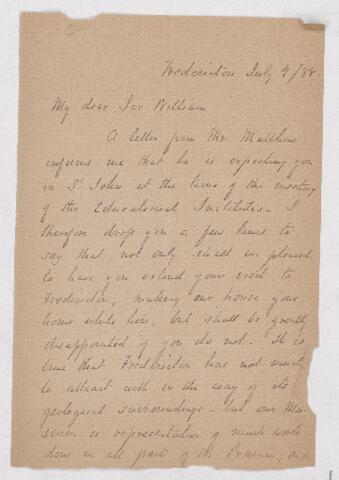 Fredericton July 4/88.
My dear Sir William
A letter from Mr. Matthew
informs me that he is expecting you
in St. John at the time of the meeting
of the Educational Institute. I
therefore drop you a few lines to
say that not only shall we pleased
to have you extend your visit to
Fredericton, making our house your
home while here, but shall be greatly
disappointed if you do not. It is
true that Fredericton has not much
to attract with in the way of its
geological surroundings - but our Mu-
seum is representative of much work
done in all parts of the Province, and